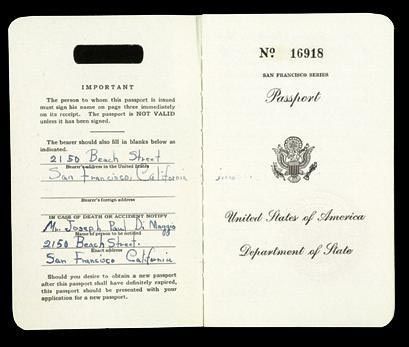 IMPORTANT
The person to whom this passport is issued
must sign his name on page three immediately
on its receipt. The passport is NOT VALID
unless it has been signed.
The bearer should also fill in blanks below as
indicated.
2150 Beach Street
Bearer's address in the United States
San Francisco, California
Bearer's foreign address
IN CASE OF DEATH OR ACCIDENT NOTIFY
Mr. Joseph Paul Di Maggio
Name of person to be notified
2150 Beach Street
Exact address
San Francisco California
Should you desire to obtain a new passport
after this passport shall have definitely expired,
this passport should be presented with your
application for a new passport.
No. 16918
SAN FRANCISCO SERIES
Passport
United States of America
Department of State